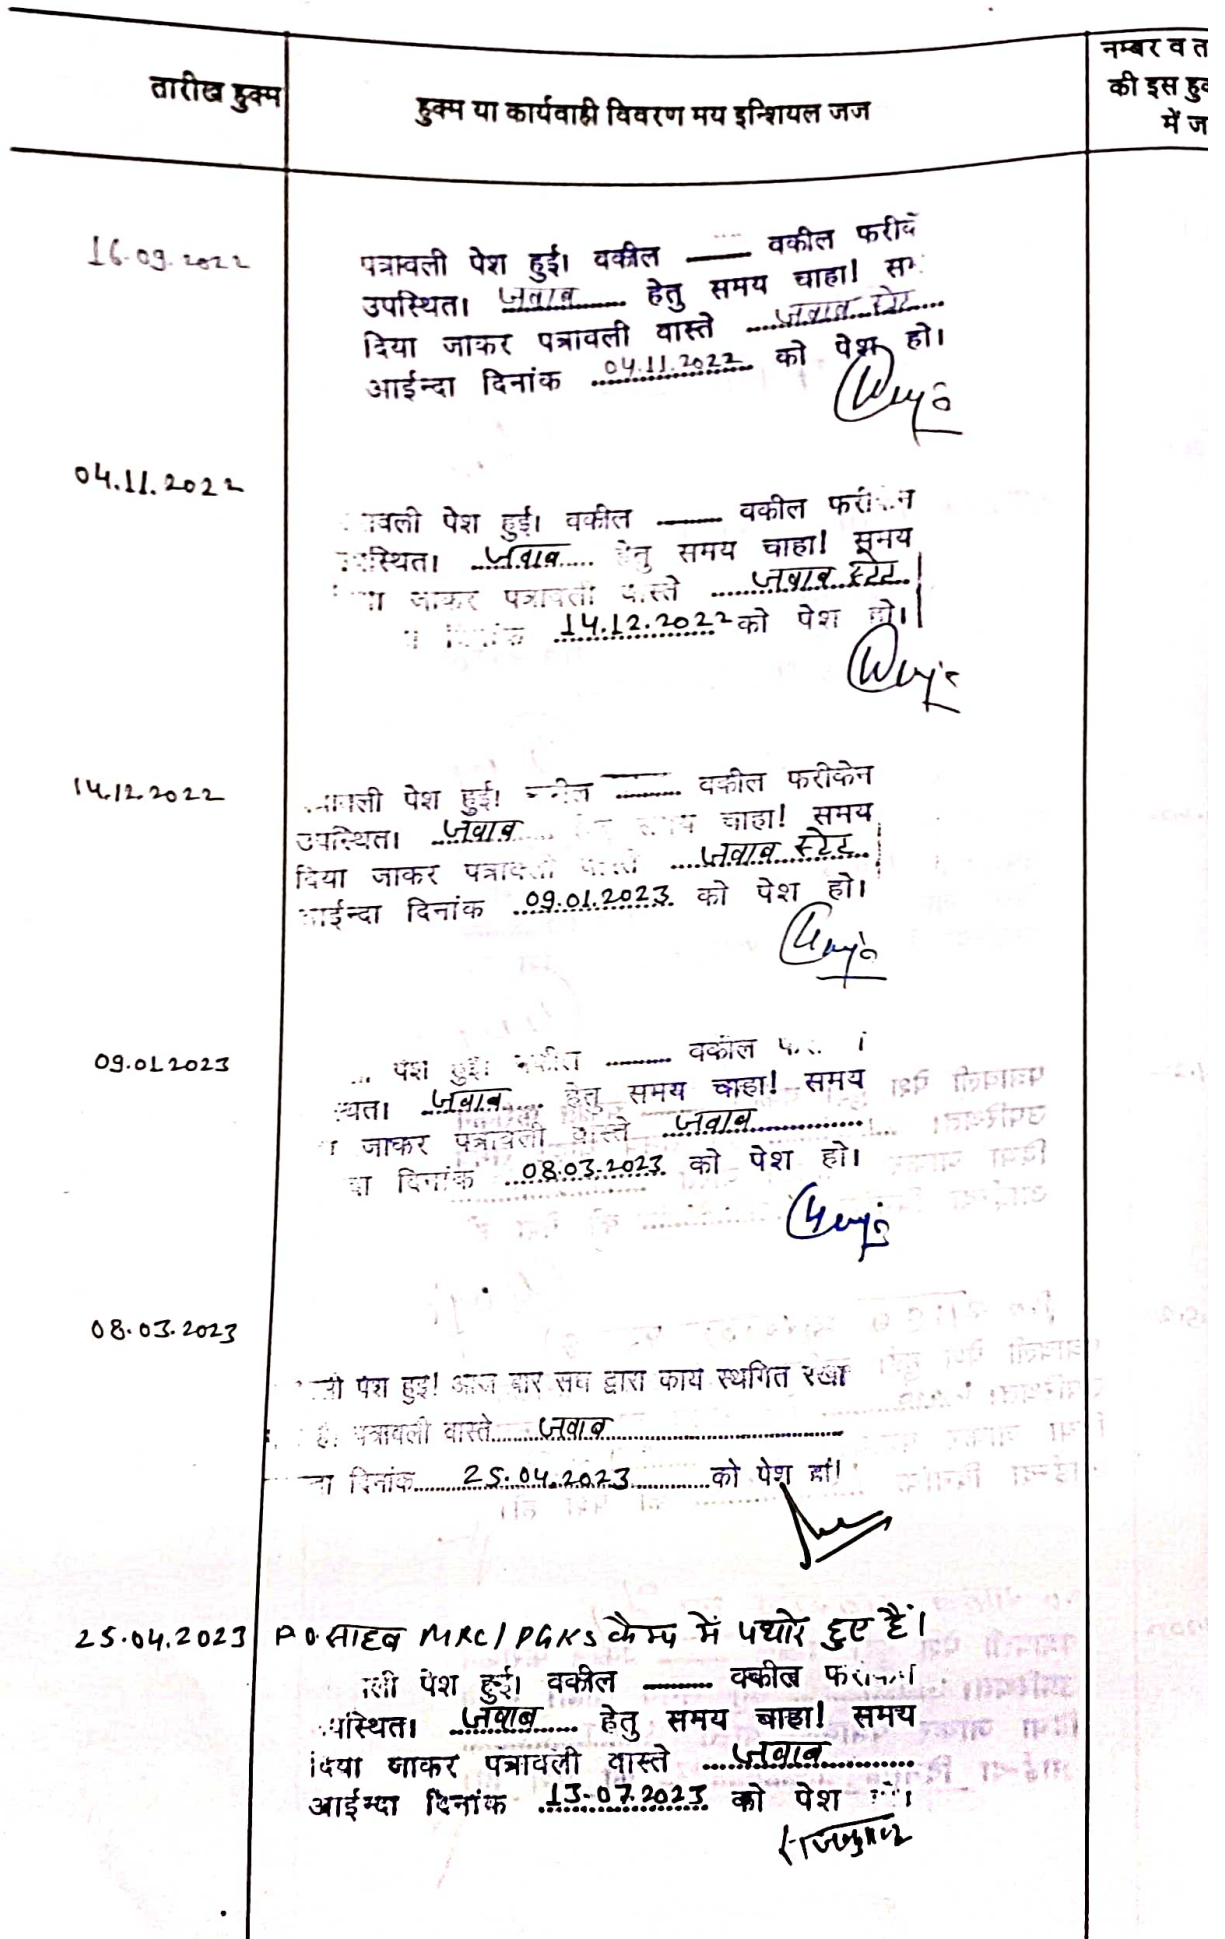 तारीख हुक्म
हुक्म या कार्यवाही विवरण मय इन्शियल जज
नम्बर व त
की इस हु
में ज
16.09.2022
पत्रावली पेश हुई। वकील —— वकील फरीके
उपस्थित। जवाब हेतु समय चाहा! सम
दिया जाकर पत्रावली वास्ते जवाब स्टेट
आईन्दा दिनांक 04.11.2022 को पेश हो।
04.11.2022
ावली पेश हुई। वकील —— वकील फरीकेन
उपस्थित। जवाब हेतु समय चाहा! समय
जाकर पत्रावली वास्ते जवाब स्टेट
दिनांक 14.12.2022 को पेश हो।
14.12.2022
पेश हुई! वकील —— वकील फरीकेन
उपस्थित। जवाब हेतु समय चाहा! समय
दिया जाकर पत्रावली वास्ते जवाब स्टेट
आईन्दा दिनांक 09.01.2023 को पेश हो।
09.01.2023
पेश हुई। वकील —— वकील
स्थित। जवाब हेतु समय चाहा! समय
जाकर पत्रावली वास्ते जवाब
दिनांक 08.03.2023 को पेश हो।
08.03.2023
ली पेश हुई! आज बार संघ द्वारा कार्य स्थगित रखा
है। पत्रावली वास्ते जवाब
दिनांक 25.04.2023 को पेश हो!
25.04.2023 P.O. साहब MRC/PGKS कैम्प में पधारे हुए हैं।
ली पेश हुई। वकील —— वकील फरीकेन
उपस्थित। जवाब हेतु समय चाहा! समय
दिया जाकर पत्रावली वास्ते जवाब
आईन्दा दिनांक 13-07.2023 को पेश हो।